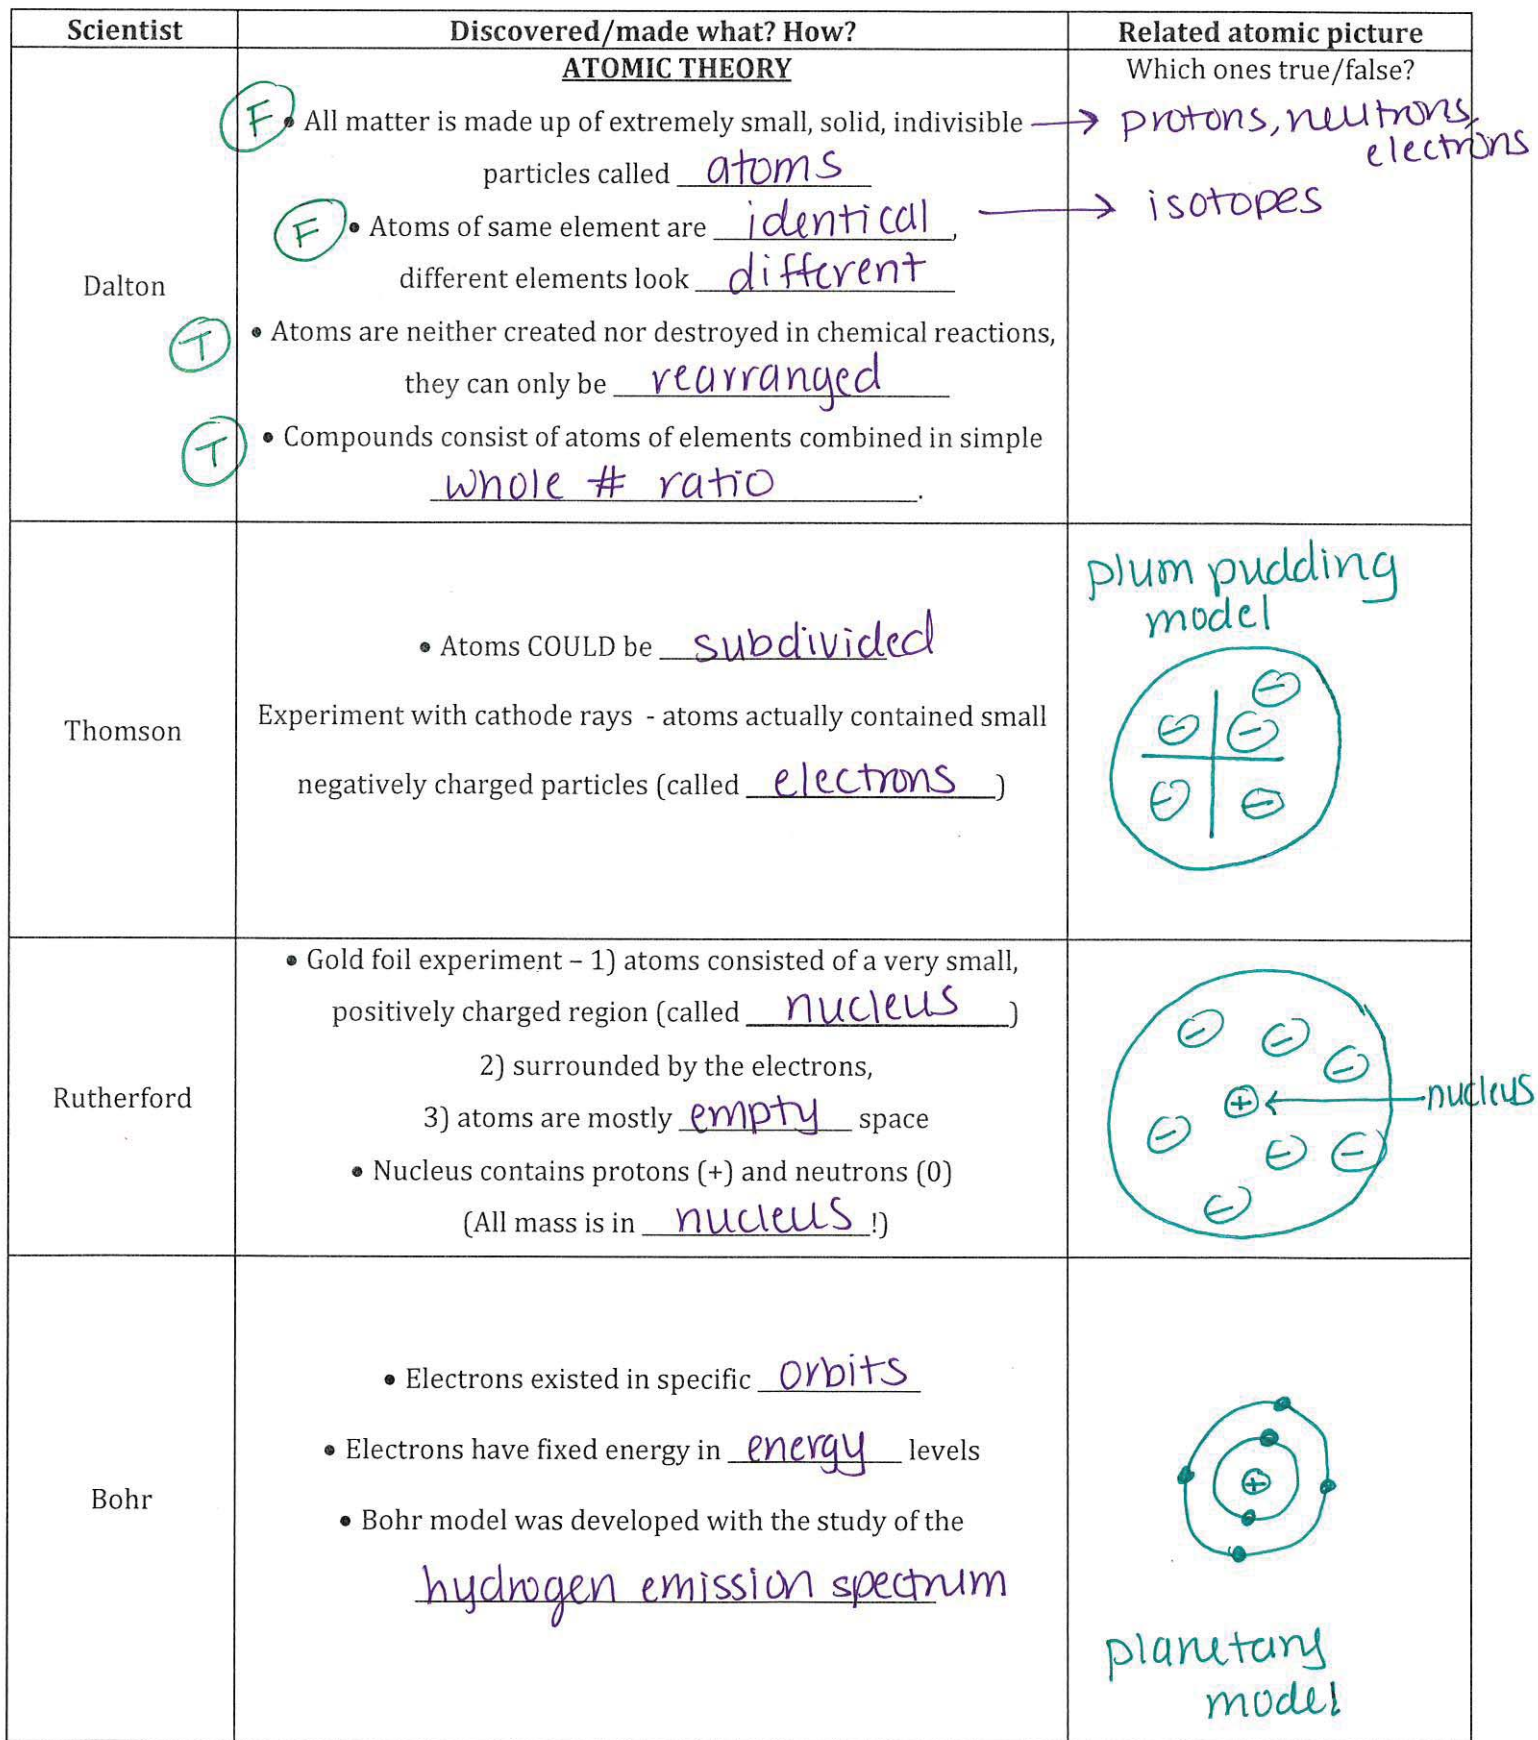 Scientist
Discovered/made what? How?
Related atomic picture
Dalton
ATOMIC THEORY
F • All matter is made up of extremely small, solid, indivisible →
particles called atoms
F • Atoms of same element are identical, →
different elements look different
T • Atoms are neither created nor destroyed in chemical reactions,
they can only be rearranged
T • Compounds consist of atoms of elements combined in simple
whole # ratio.
Which ones true/false?
protons, neutrons,
electrons
isotopes
Thomson
• Atoms COULD be subdivided
Experiment with cathode rays - atoms actually contained small
negatively charged particles (called electrons)
plum pudding
model
+
- - - - -
Rutherford
• Gold foil experiment – 1) atoms consisted of a very small,
positively charged region (called nucleus)
2) surrounded by the electrons,
3) atoms are mostly empty space
• Nucleus contains protons (+) and neutrons (0)
(All mass is in nucleus!)
- - -
+ ← nucleus
- - -
-
Bohr
• Electrons existed in specific orbits
• Electrons have fixed energy in energy levels
• Bohr model was developed with the study of the
hydrogen emission spectrum
+
planetary
model